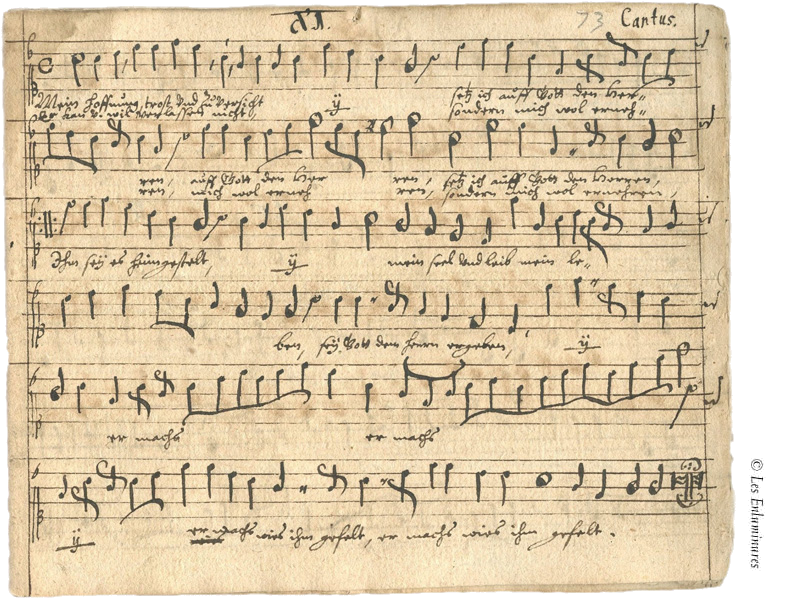 XI.
73 Cantus.
Mein hoffnung, trost und zuversicht ÿ setz ich auff Gott den Her-
Er kan v. wil verlassen nicht, sondern mich wol erneh-
ren, auff Gott den Her ren, setz ich auff Gott den Herren,
ren, mich wol erneh ren, sondern mich wol ernehren,
Ihm seÿ es heimgestelt, ÿ mein seel und leib mein le-
ben, seÿ Gott dem herrn ergeben, ÿ
er machs er machs
ÿ er machs wies ihm gefelt, er machs wies ihm gefelt.
© Les Enluminures